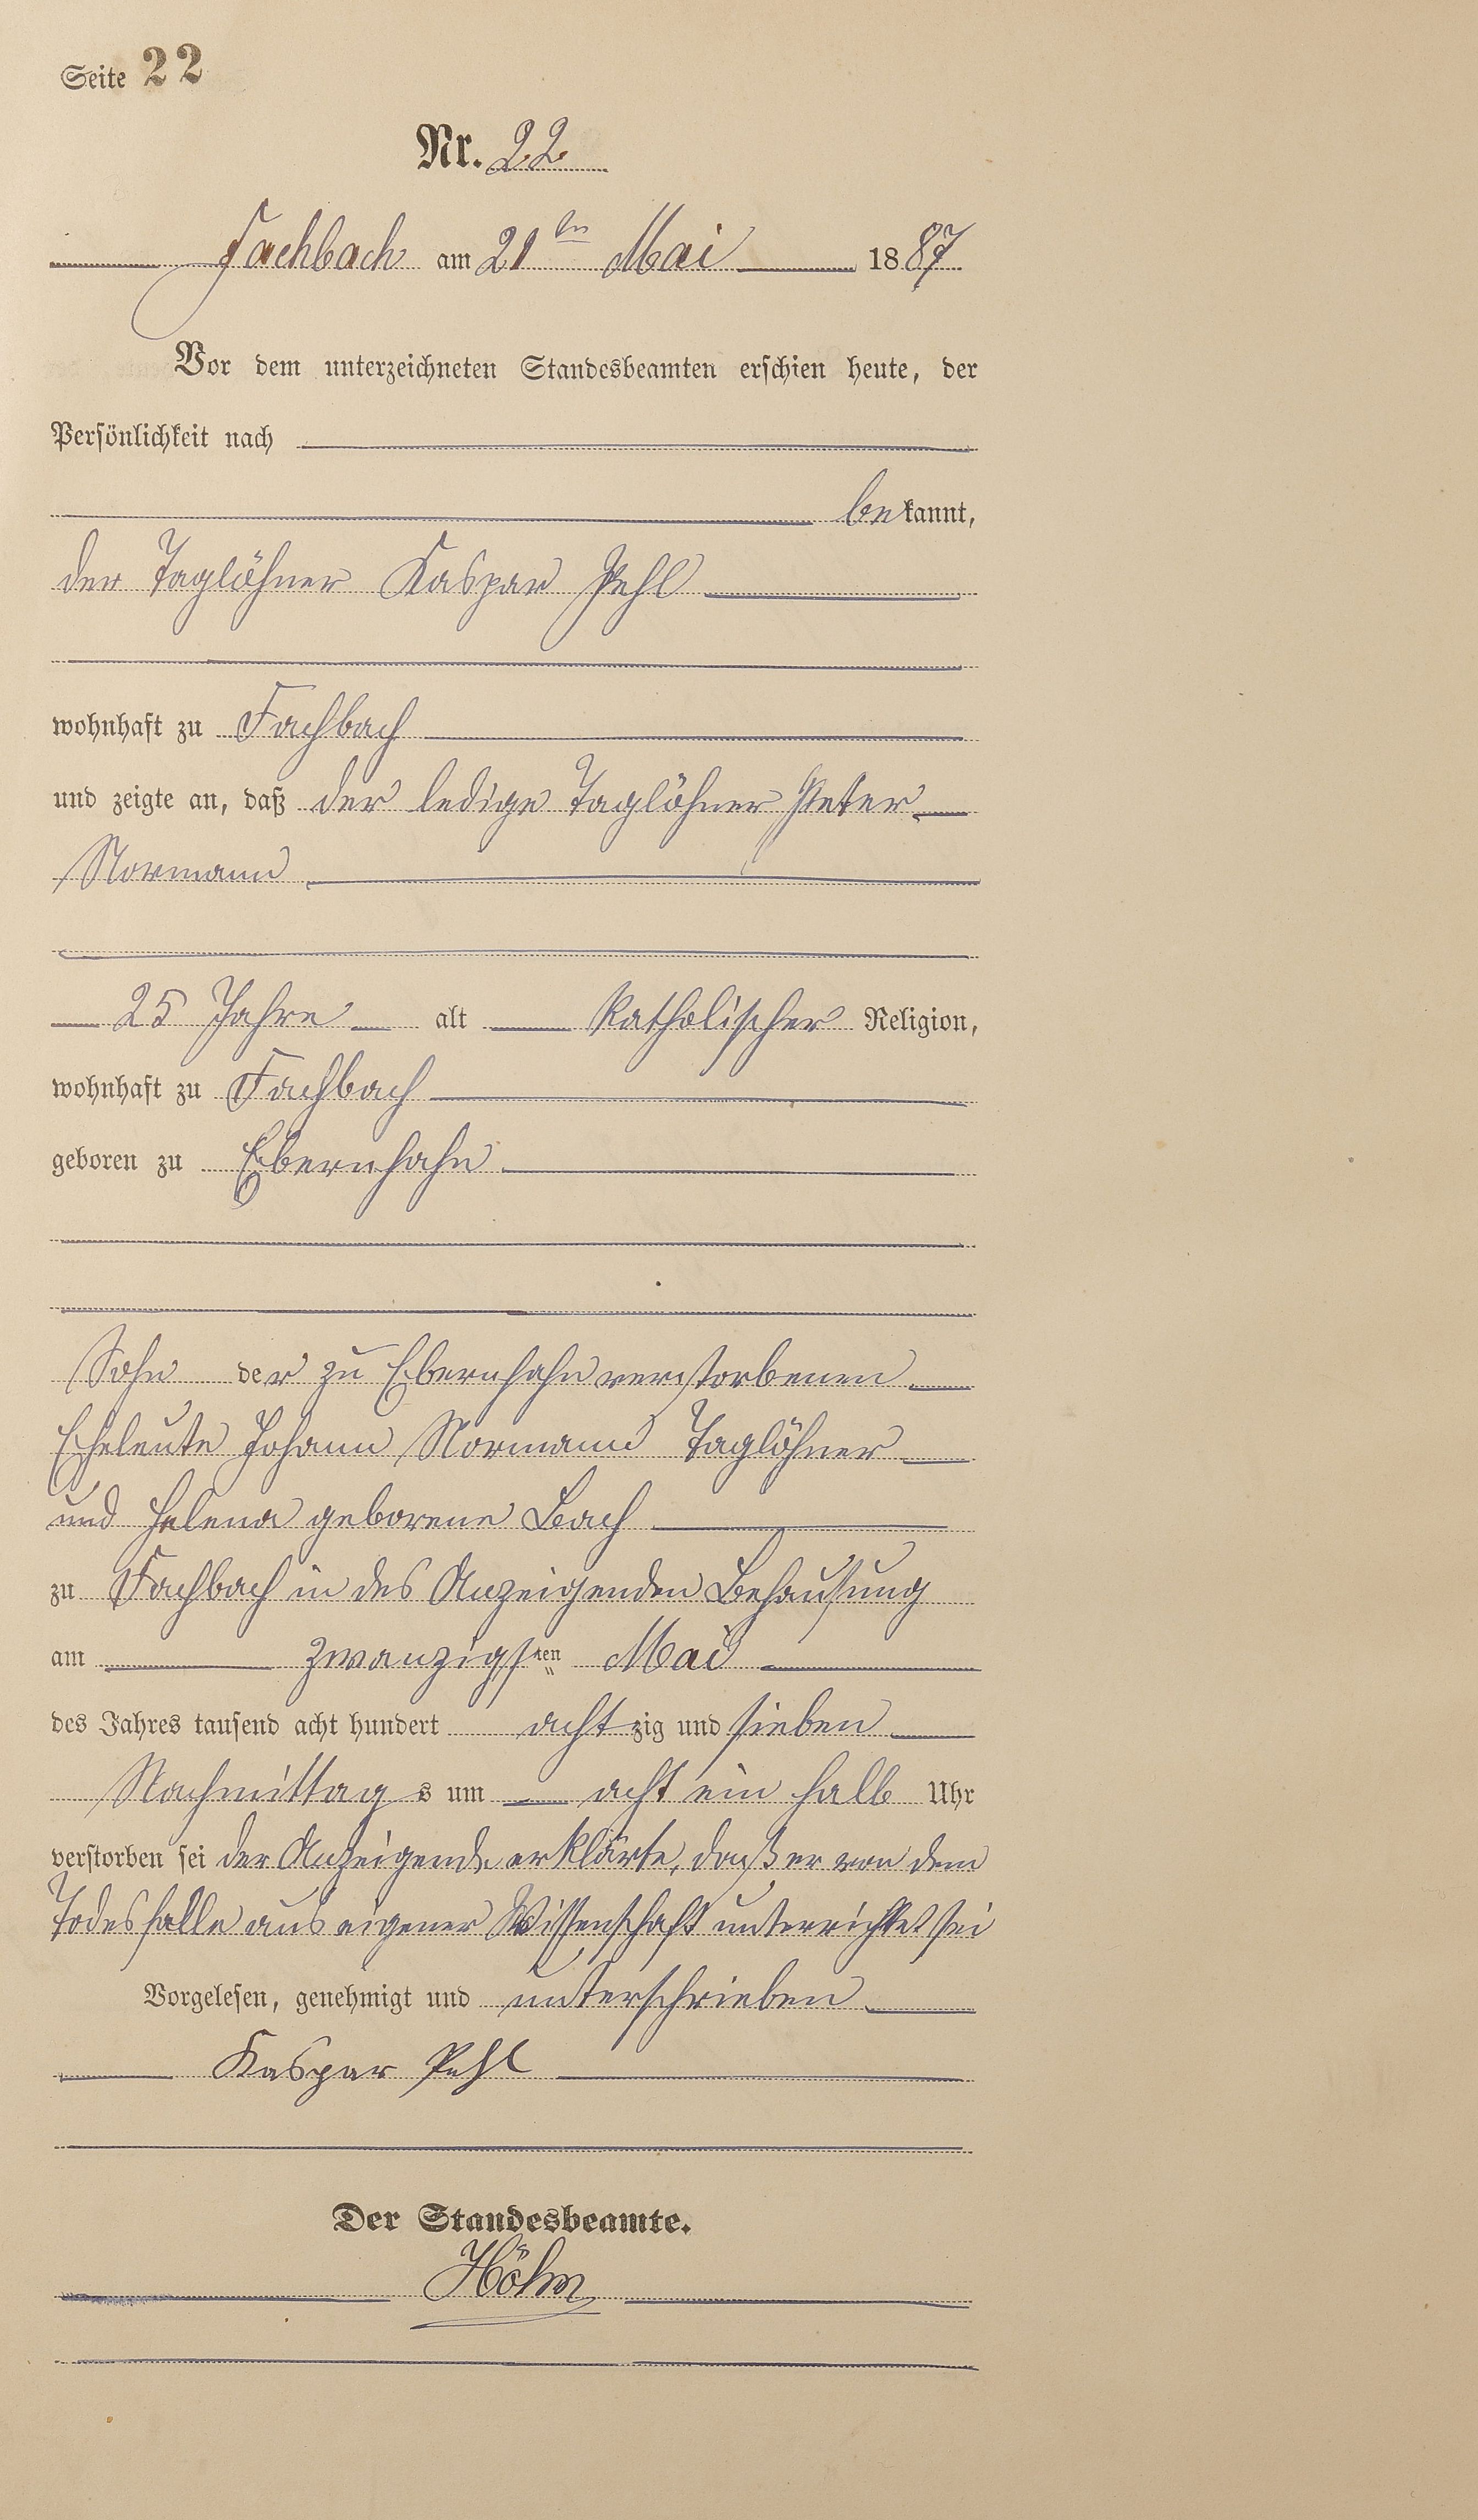 Seite 22
Nr. 22
Fachbach am 21ten Mai 1887
Vor dem unterzeichneten Standesbeamten erschien heute, der
Persönlichkeit nach
bekannt,
der Taglöhner Kaspar Pehl
wohnhaft zu Fachbach
und zeigte an, daß der ledige Taglöhner Peter
Normann
25 Jahre alt katholischer Religion,
wohnhaft zu Fachbach
geboren zu Ebernhahn
Sohn der zu Ebernhahn verstorbenen
Eheleute Johann Normann Taglöhner
und Helena geborene Bach
zu Fachbach in des Anzeigenden Behausung
am zwanzigsten Mai
des Jahres tausend acht hundert achtzig und sieben
Nachmittags um acht ein halb Uhr
verstorben sei der Anzeigende erklärte, daß er von dem
Todesfalle aus eigener Wissenschaft unterrichtet sei
Vorgelesen, genehmigt und unterschrieben
Kaspar Pehl
Der Standesbeamte.
Höhn